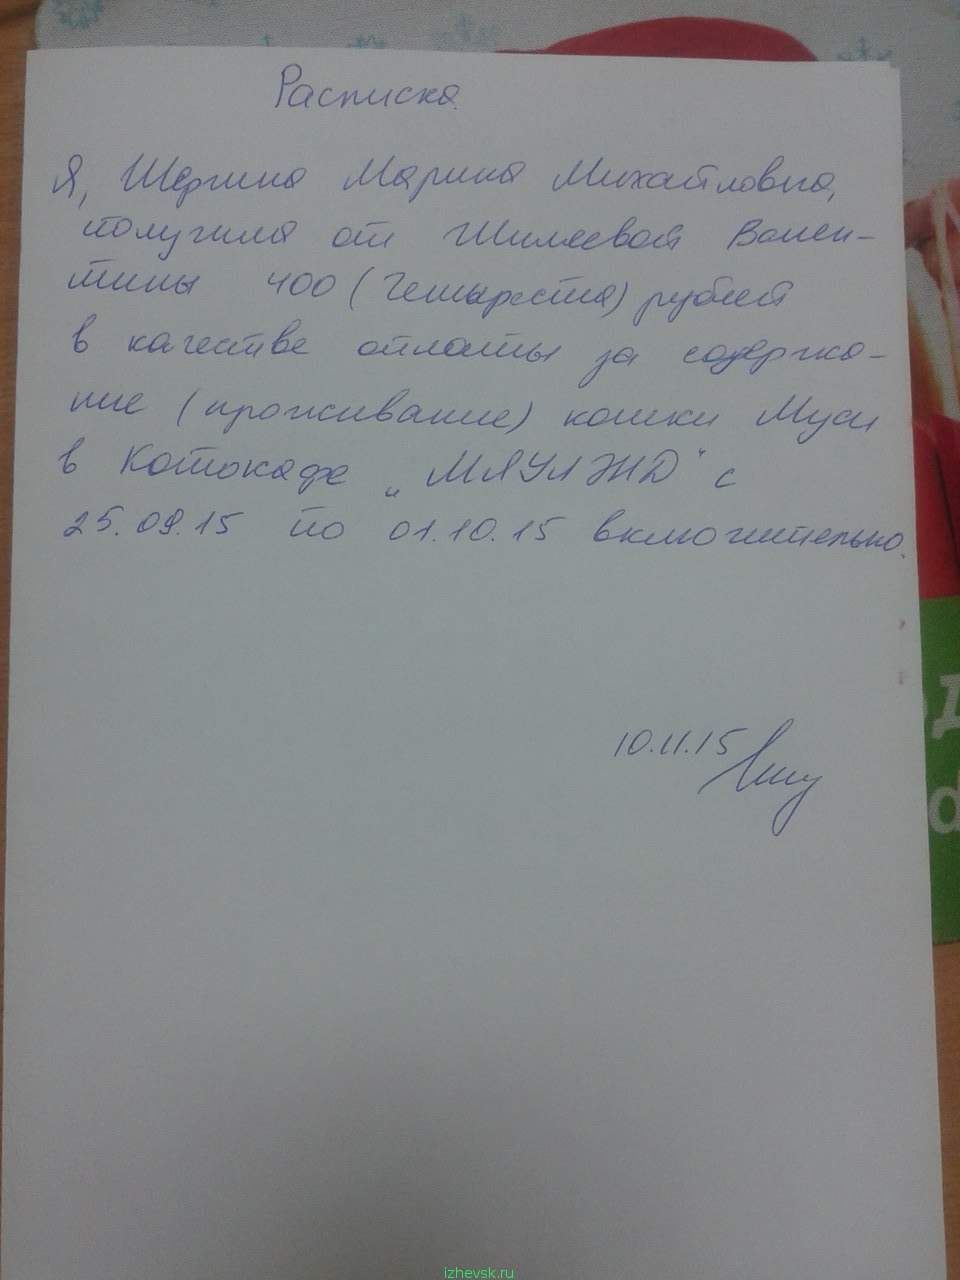 Расписка.
Я, Шергина Марина Михайловна,
получила от Шиляевой Вален-
тины 400 (Четыреста) рублей
в качестве оплаты за содержа-
ние (проживание) кошки Муси
в Котокафе „МЯУЛЭНД" с
25.09.15 по 01.10.15 включительно.
10.11.15
izhevsk.ru